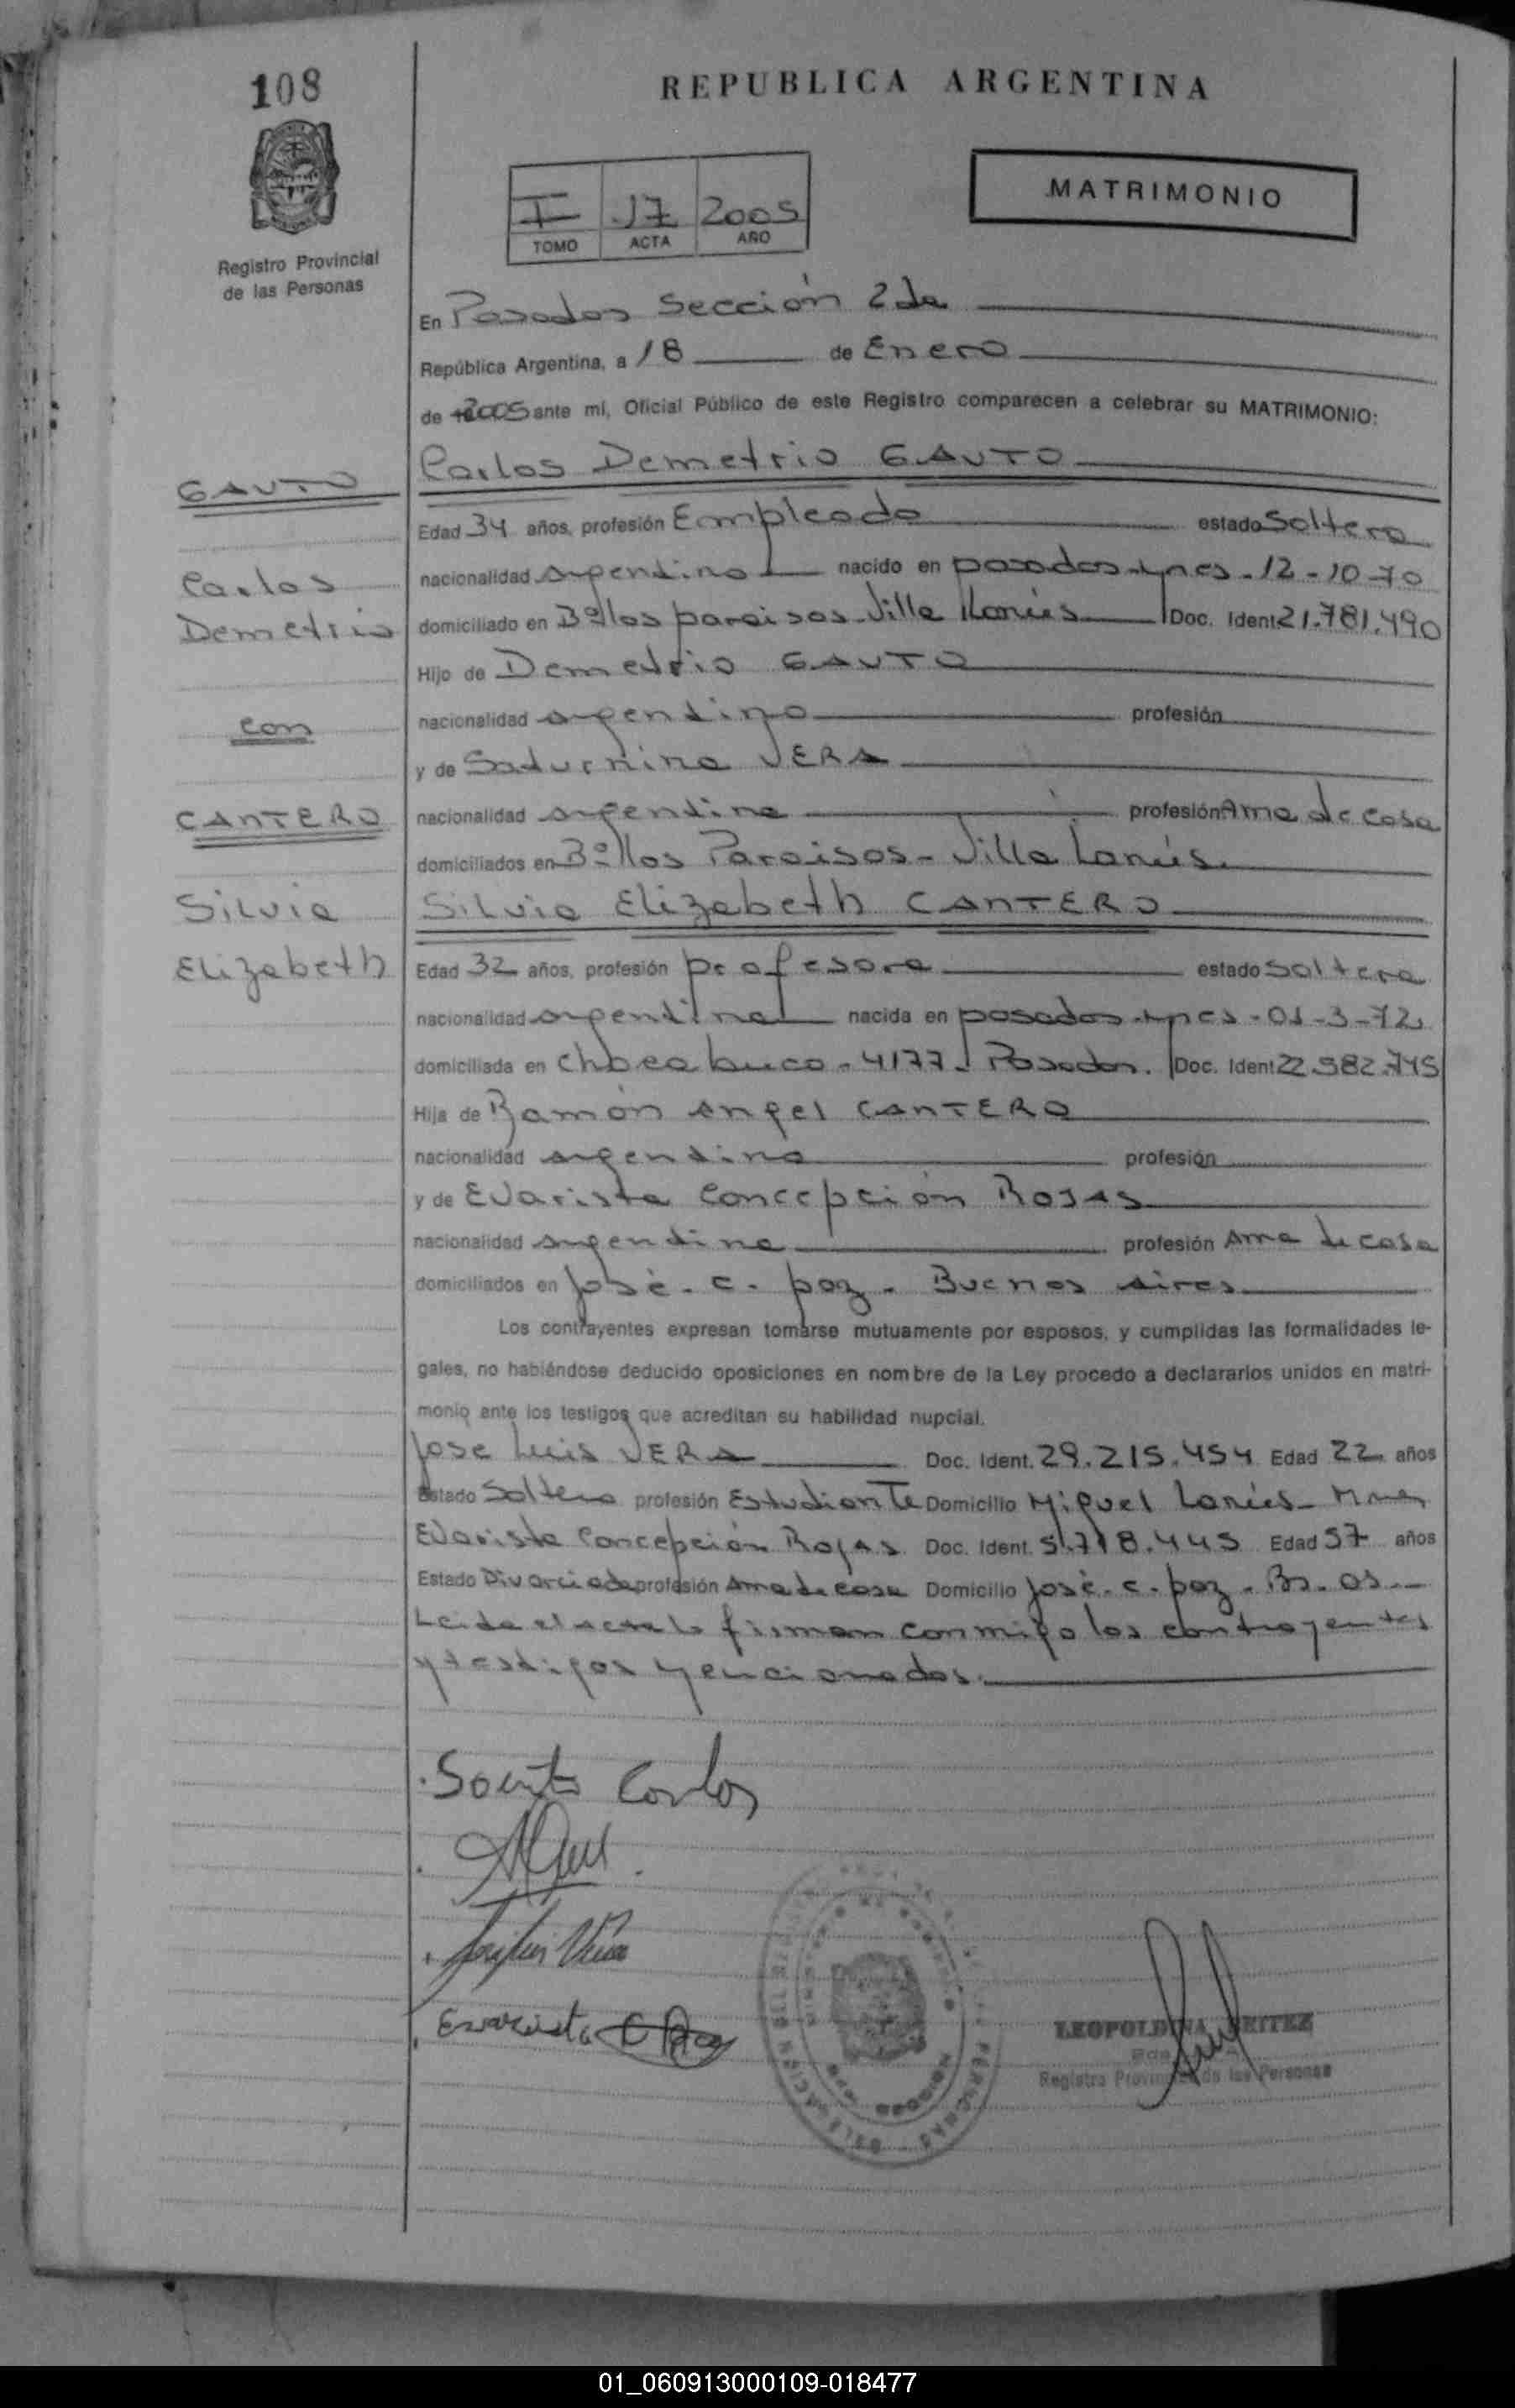 108
REPUBLICA ARGENTINA
I 17 2005
TOMO ACTA AÑO
MATRIMONIO
Registro Provincial
de las Personas
En Posadas Sección 2da
República Argentina, a 18 de Enero
de 2005 ante mí, Oficial Público de este Registro comparecen a celebrar su MATRIMONIO:
GAUTO
Carlos
Demetrio
con
CANTERO
Silvia
Elizabeth
Carlos Demetrio GAUTO
Edad 34 años, profesión Empleado estado Soltero
nacionalidad argentino nacido en posadas-Mnes-12-10-70
domiciliado en Bº los paraisos-Villa Lanús Doc. Ident 21.781.490
Hijo de Demetrio GAUTO
nacionalidad argentino profesión
y de Saturnina VERA
nacionalidad argentina profesión Ama de casa
domiciliados en Bº los Paraisos-Villa Lanús.
Silvia Elizabeth CANTERO
Edad 32 años, profesión profesora estado soltera
nacionalidad argentina nacida en posadas-Mnes-01-3-72
domiciliada en Chacabuco-4177-Posadas. Doc. Ident 22.582.745
Hija de Ramón Angel CANTERO
nacionalidad argentino profesión
y de Evarista Concepción ROJAS
nacionalidad argentina profesión Ama de casa
domiciliados en José-C-paz-Buenos Aires
Los contrayentes expresan tomarse mutuamente por esposos, y cumplidas las formalidades le-
gales, no habiéndose deducido oposiciones en nombre de la Ley procedo a declararlos unidos en matri-
monio ante los testigos que acreditan su habilidad nupcial.
Jose Luis VERA Doc. Ident. 29.215.454 Edad 22 años
Estado Soltero profesión Estudiante Domicilio Miguel Lanús-Mnes
Evarista Concepción Rojas Doc. Ident. 5.718.445 Edad 57 años
Estado Divorciada profesión Ama de casa Domicilio José-C-paz-Bs-As-
Leida el acta la firman conmigo los contrayentes
y testigos mencionados.
Gauto Carlos
Evarista C
LEOPOLDINA BEITEZ
Registro Provincial de las Personas
01_060913000109-018477